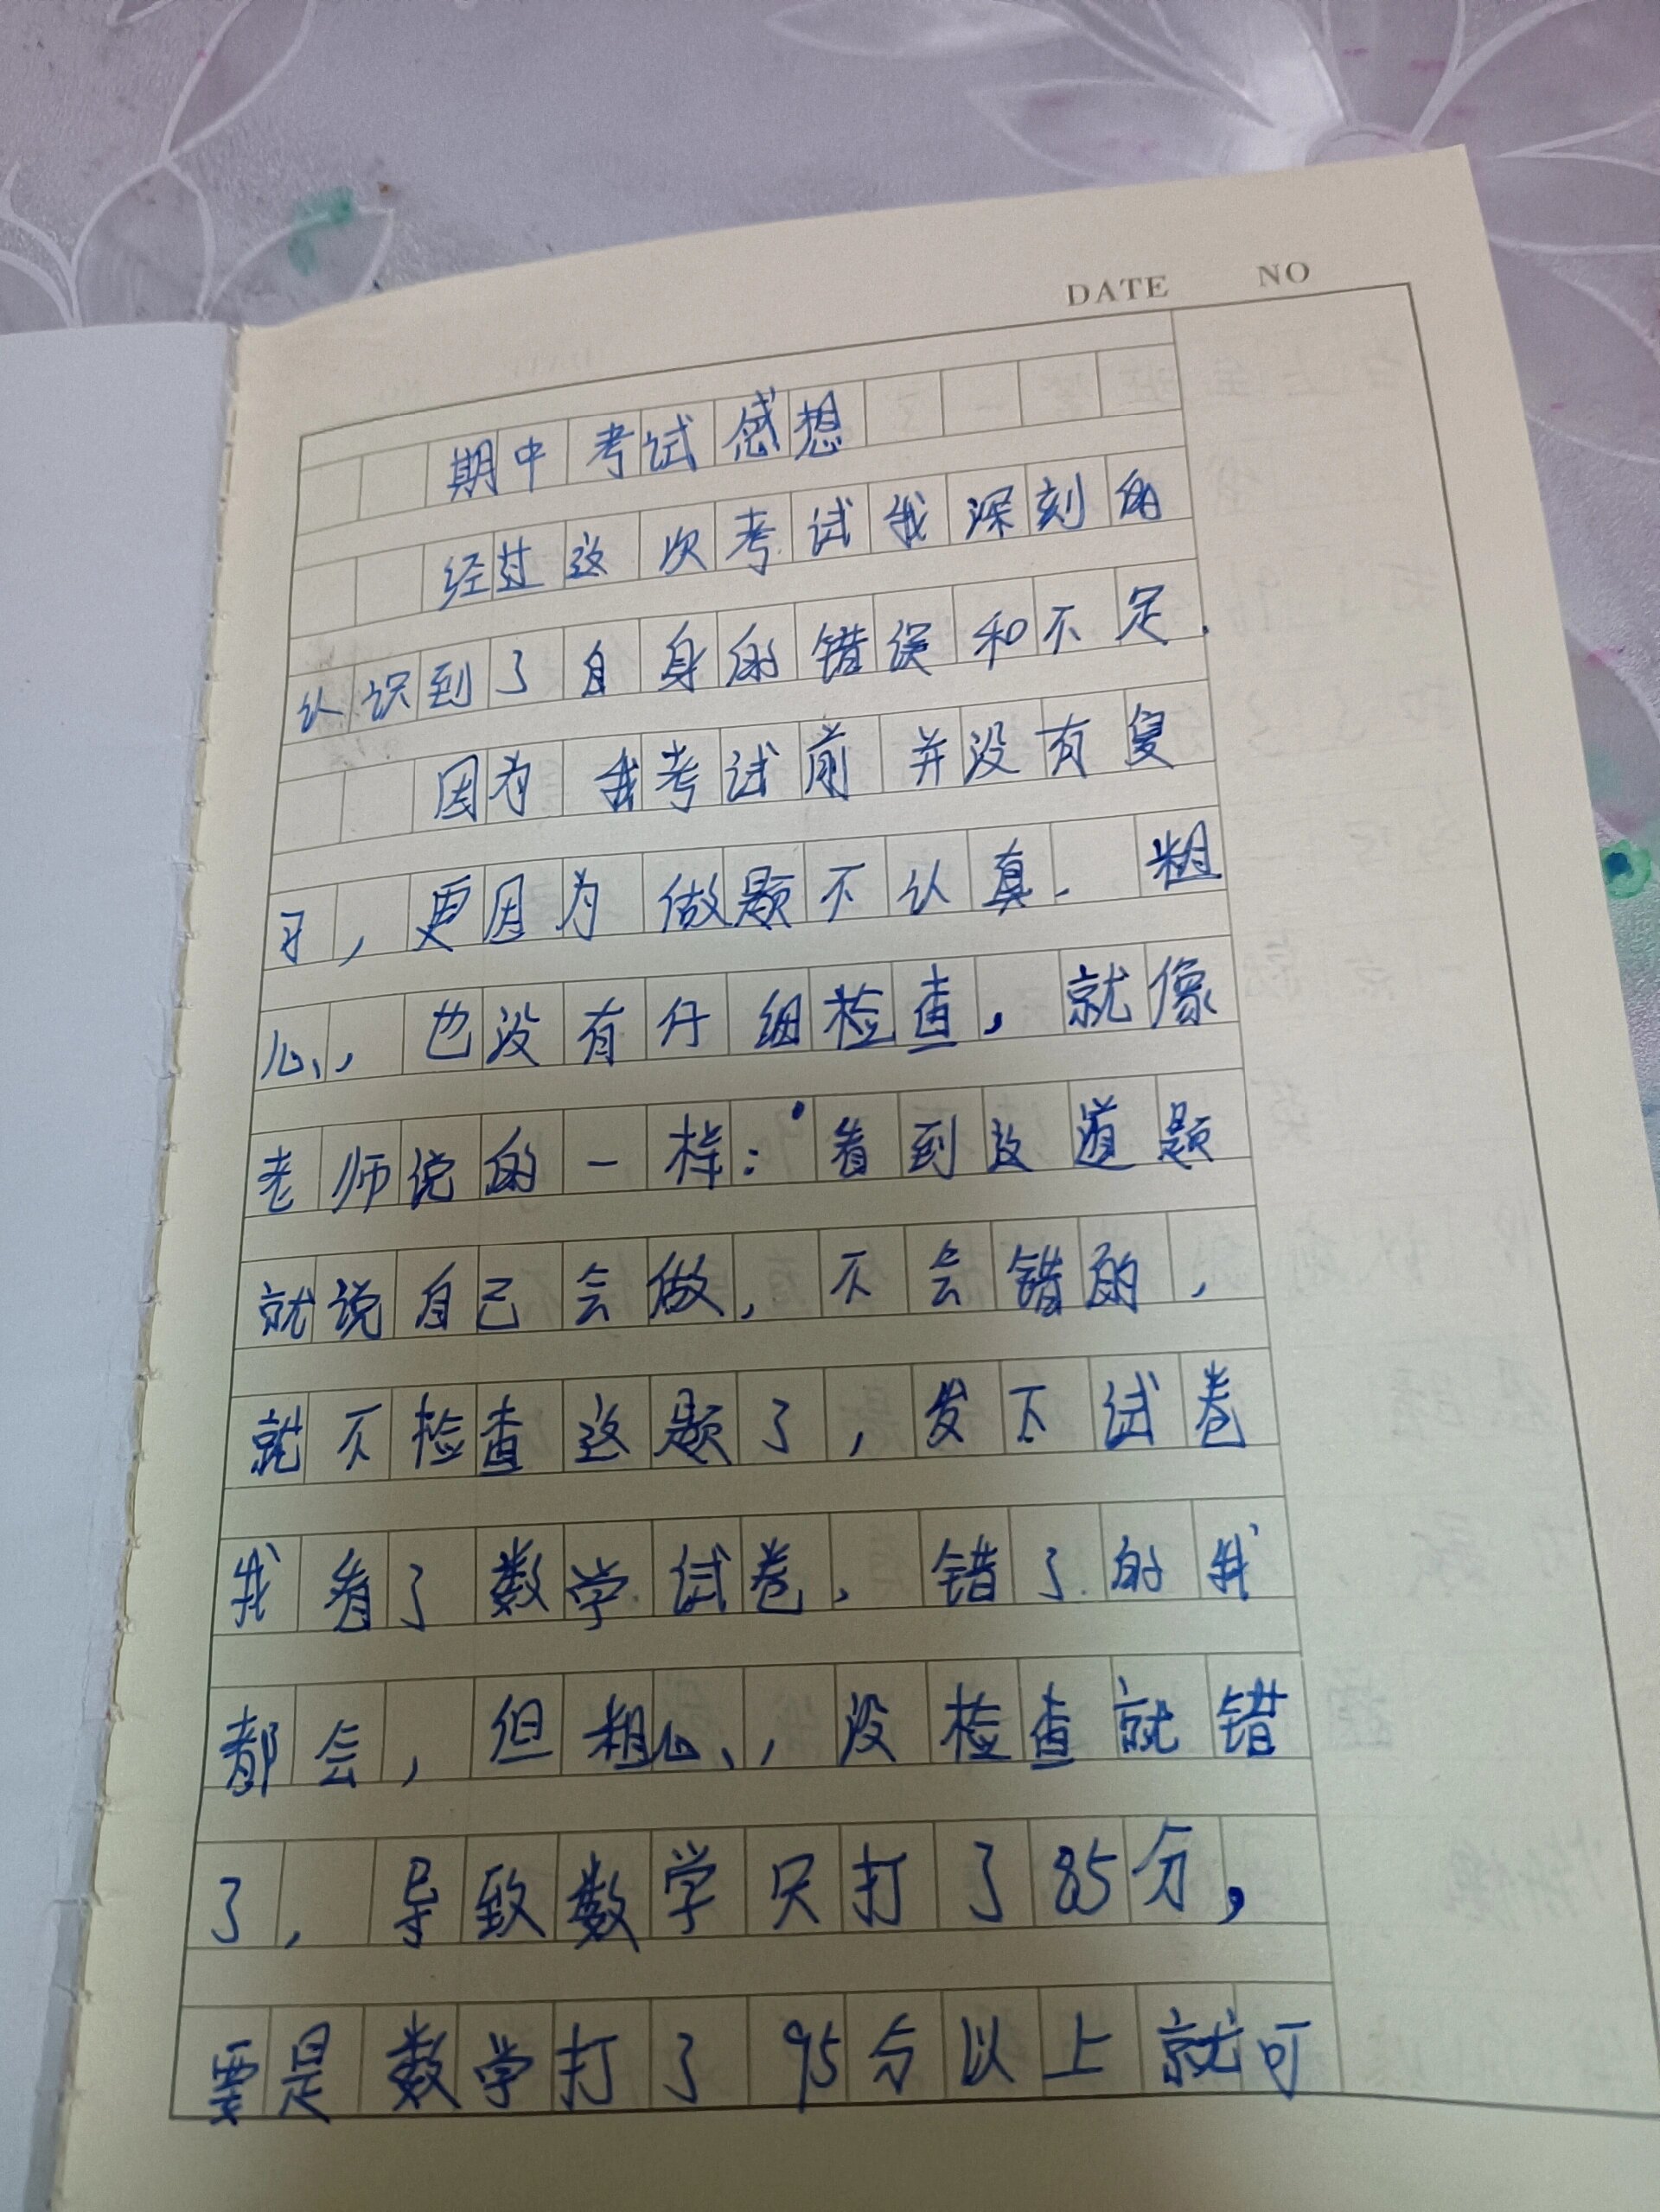 DATE NO
期中考试感想
经过这次考试我深刻的
认识到了自身的错误和不足.
因为我考试前并没有复
习,更因为做题不认真.粗
心,也没有仔细检查,就像
老师说的一样:“看到这道题
就说自己会做,不会错的,
就不检查这题了,发下试卷
我看了数学试卷,错了的我
都会,但粗心,没检查就错
了,导致数学只打了85分,
要是数学打了95分以上就可